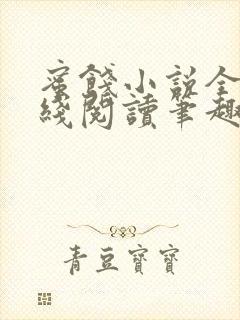 蜜餞小説全
綫閱讀筆趣
青豆寶寶